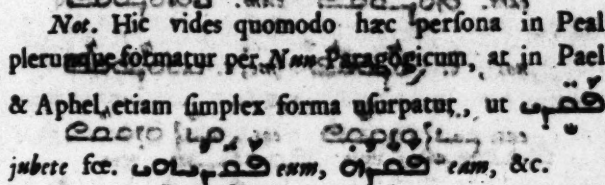 Not. Hic vides quomodo hæc perſona in Peal
plerumque formatur per Nun Paragogicum, at in Pael
& Aphel etiam ſimplex forma uſurpatur, ut
jubete fœ. eum, eam, &c.